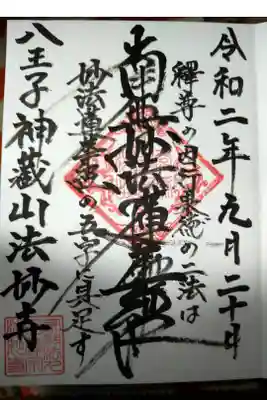 令和二年九月二十日
釋尊の因行果徳の二法は
南無妙法蓮華経
妙法蓮華経の五字に具足す
八王子神藏山法妙寺